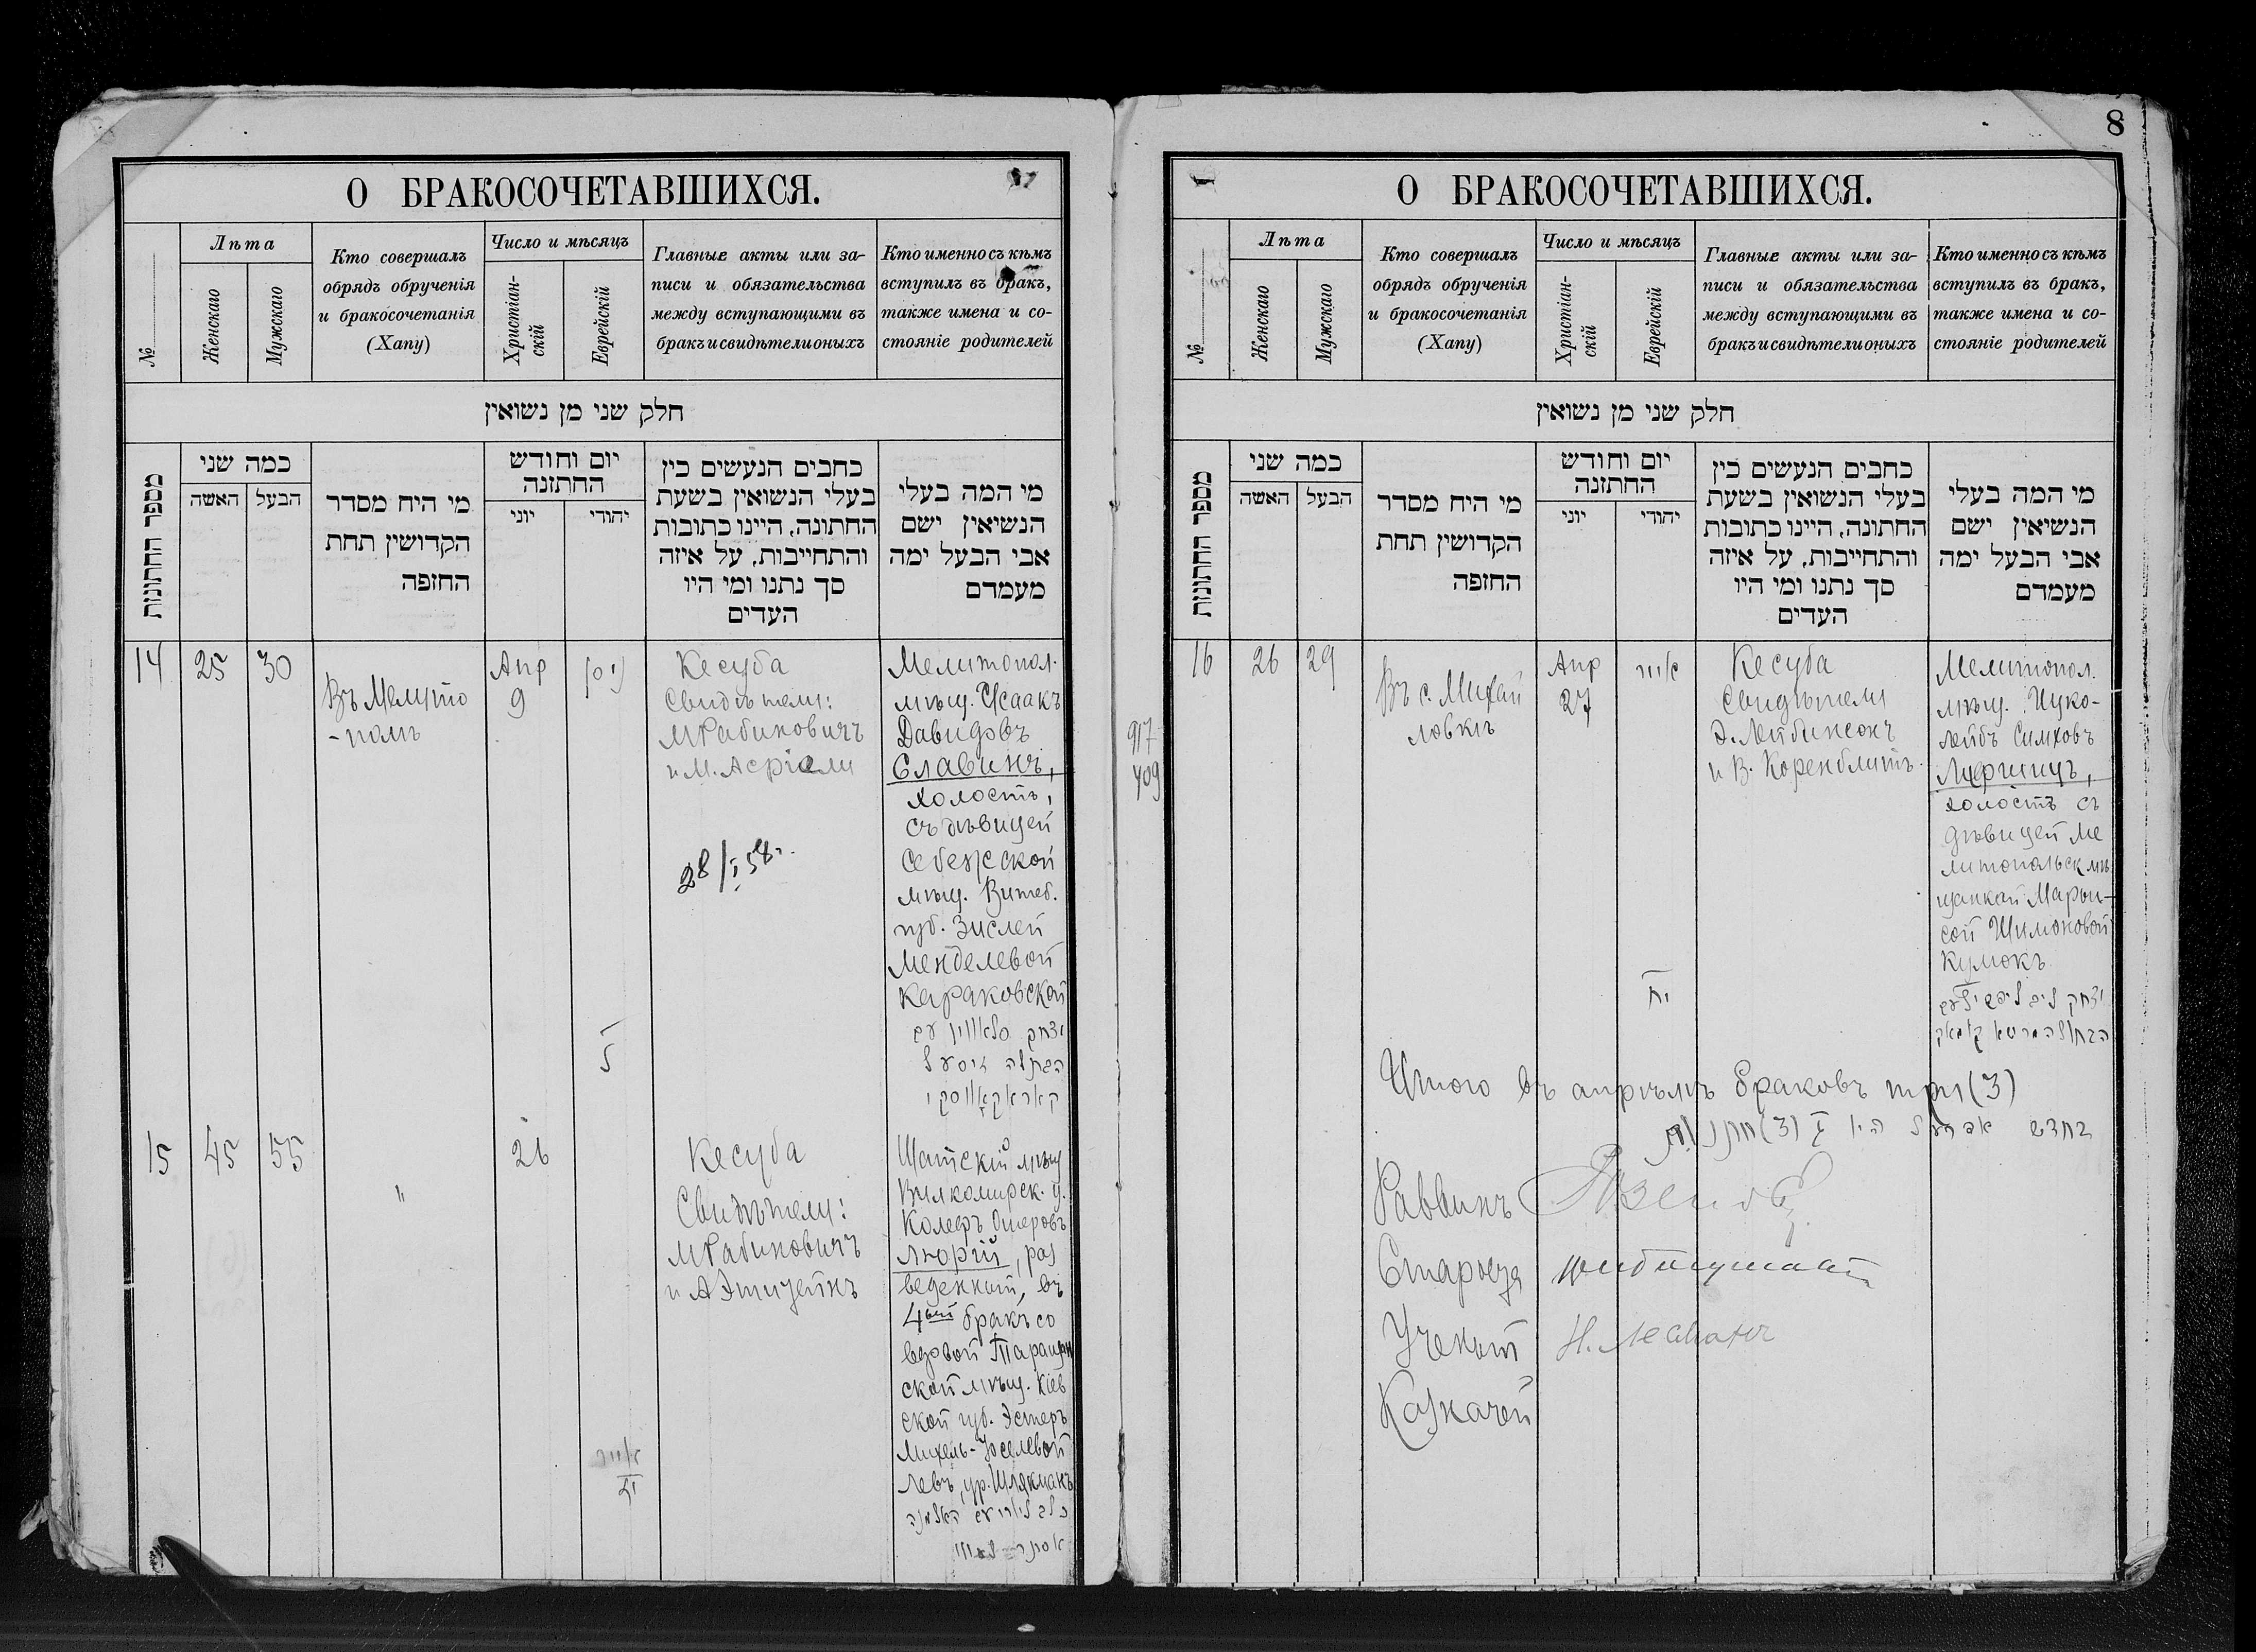 О БРАКОСОЧЕТАВШИХСЯ.
№
Лѣта
Женскаго
Мужскаго
Кто совершалъ
обрядъ обрученія
и бракосочетанія
(Хапу)
Число и мѣсяцъ
Христіан-
скій
Еврейскій
Главные акты или за-
писи и обязательства
между вступающими въ
бракъ и свидѣтели оныхъ
Кто именно съ кѣмъ
вступилъ въ бракъ,
также имена и со-
стояніе родителей
חלק שני מן נשואין
מספר החתונות
כמה שני
האשה
הבעל
מי היח מסדר
הקדושין תחת
החופה
יום וחודש
החתונה
יוני
יהודי
כתבים הנעשים כין
בעלי הנשואין בשעת
החתונה, היינו כתובות
והתחייבות, על איזה
סך נתנו ומי היו
העדים
מי המה בעלי
הנשיאין ישם
אבי הבעל ימה
מעמדם
14
25
30
Въ Мелито
-полѣ
Апр
9
ניסן
ל
Кесуба
Свидѣтели:
М Рабиновичъ
и М. Асріели
28/I 58 г.
Мелитопол.
мѣщ. Исаакъ
Давидовъ
Славинъ,
холостъ,
съ дѣвицей
Себежской
мѣщ. Витеб.
губ. Зислей
Менделевой
Караковской
יצחק סלאווין עם
הבתולה זיסעל
קאראקאווסקי
15
45
55
"
26
אייר
יז
Кесуба
Свидѣтели:
М Рабиновичъ
и А Эпштейнъ
Шатскій мѣщ
Вилкомирск. у.
Колевъ Ошеровъ
Люрій, раз
веденный, въ
4ый бракъ со
вдовой Таращан
ской мѣщ. Кіев
ской губ. Эстеръ
Михель-Іоселевой
Левъ, ур. Шлякманъ
כלב לוריא עם האלמנה
אסתר
8
О БРАКОСОЧЕТАВШИХСЯ.
№
Лѣта
Женскаго
Мужскаго
Кто совершалъ
обрядъ обрученія
и бракосочетанія
(Хапу)
Число и мѣсяцъ
Христіан-
скій
Еврейскій
Главные акты или за-
писи и обязательства
между вступающими въ
бракъ и свидѣтели оныхъ
Кто именно съ кѣмъ
вступилъ въ бракъ,
также имена и со-
стояніе родителей
חלק שני מן נשואין
מספר החתונות
כמה שני
האשה
הבעל
מי היח מסדר
הקדושין תחת
החופה
יום וחודש
החתונה
יוני
יהודי
כתבים הנעשים כין
בעלי הנשואין בשעת
החתונה, היינו כתובות
והתחייבות, על איזה
סך נתנו ומי היו
העדים
מי המה בעלי
הנשיאין ישם
אבי הבעל ימה
מעמדם
917
409
16
26
29
Въ с. Михай
ловкѣ
Апр
27
אייר
יח
Кесуба
Свидѣтели
Э. Лейбинсонъ
и В. Коренблитъ
Мелитопол.
мѣщ. Ицко-
Лейбъ Симховъ
Лифшицъ,
холостъ съ
дѣвицей Ме
литопольск мѣ
щанкой Марьи-
сой Шимоновой
Кумокъ
יצחק ליב ליפשיץ עם
הבתולה קומאק
Итого въ апрѣлѣ браковъ три (3)
בחדש אפריל היו ג (3) חתנות
Раввинъ
Староста
Ученый
Казначей